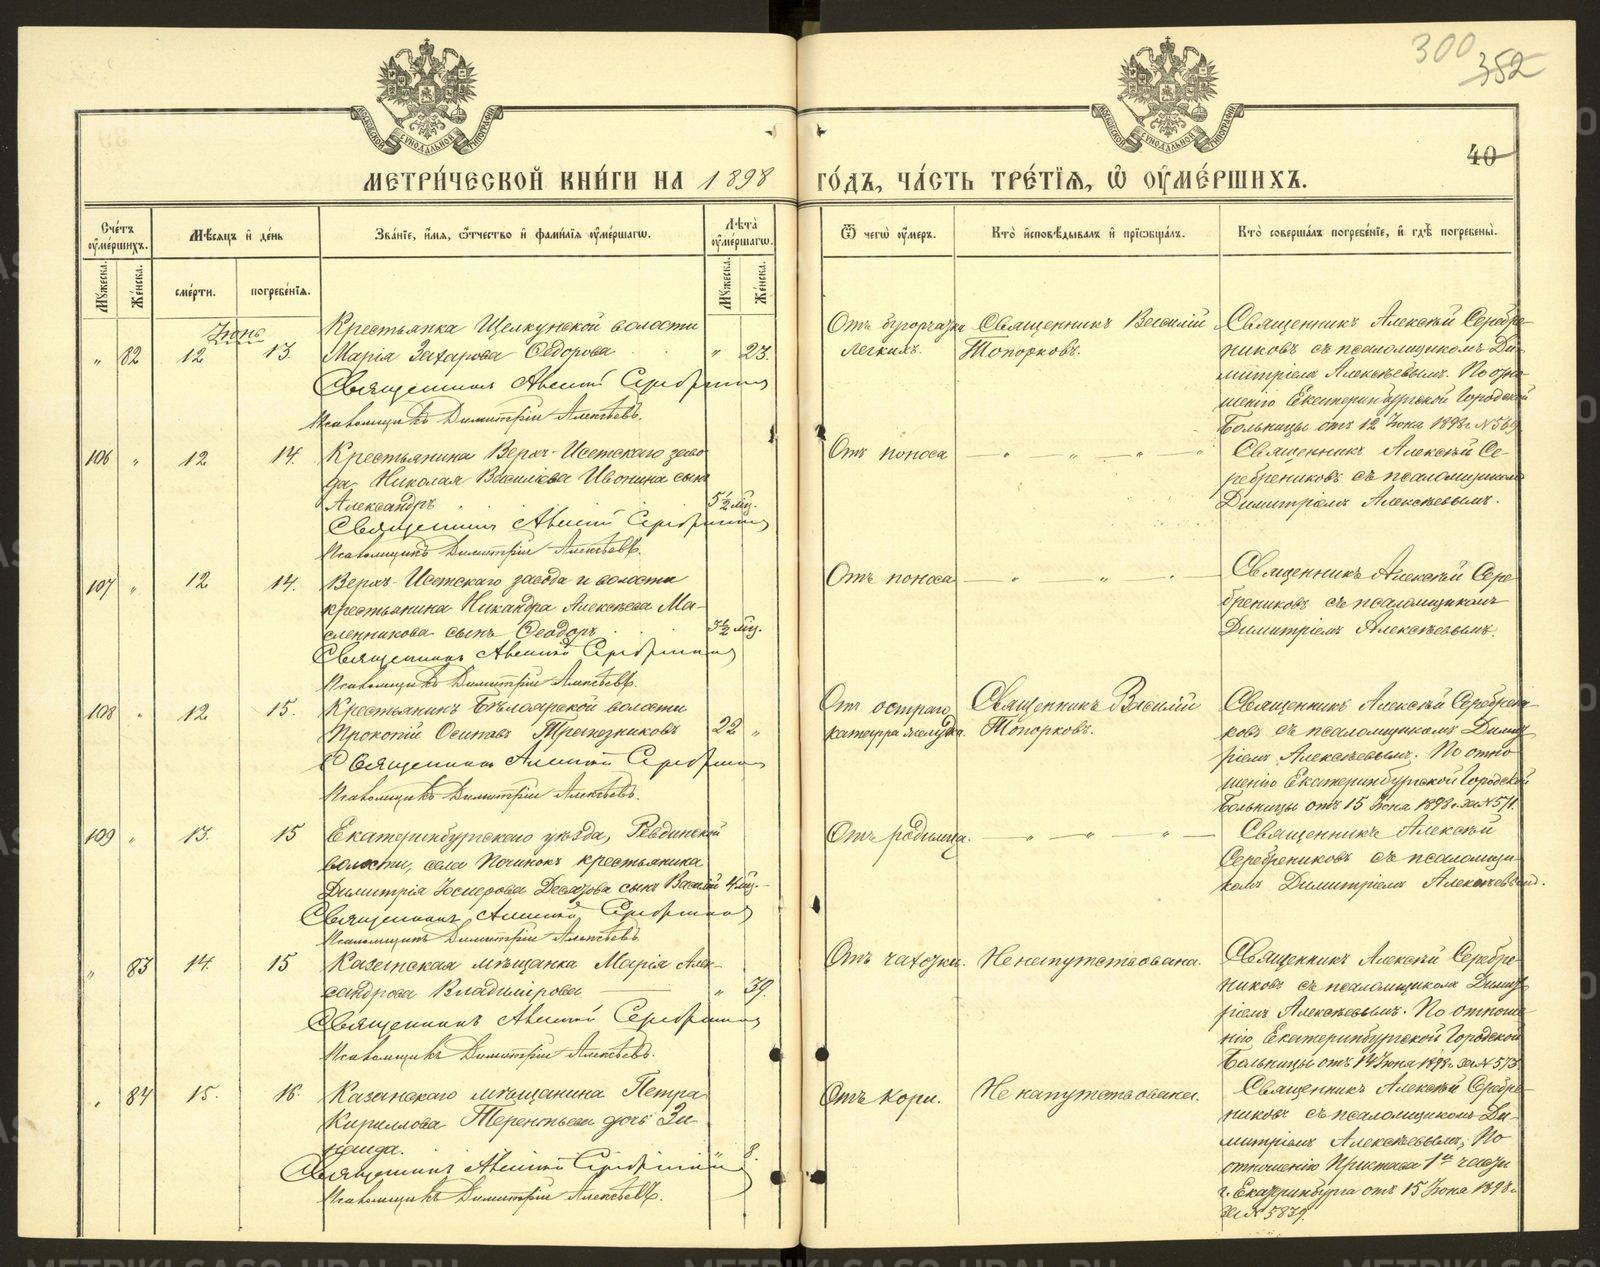 300
352
40
МОСКОВСКОЙ СѴНОДАЛЬНОЙ ТИПОГРАФІИ
МОСКОВСКОЙ СѴНОДАЛЬНОЙ ТИПОГРАФІИ
МЕТРИ́ЧЕСКОЙ КНИ́ГИ НА 1898 ГО́ДЪ, ЧА́СТЬ ТРЕ́ТІѦ, Ѿ ОУ҆МЕ́РШИХЪ.
Сче́тъ оу҆ме́ршихъ.
Мѣсяцъ и҆ де́нь
Зва́нїе, и҆́мѧ, ѻ҆́тчество и҆ фами́лїѧ оу҆ме́ршагѡ.
Лѣта̀ оу҆ме́ршагѡ.
Ѿ чегѡ̀ оу҆́меръ.
Кто̀ и҆сповѣ́дывалъ и҆ прїѻбща́лъ.
Кто̀ соверша́лъ погребе́нїе, и҆ гдѣ̀ погребены̀.
Мꙋ́жеска. Же́нска.
сме́рти. погребе́нїѧ.
Мꙋ́жеска. Же́нска.
Іюнь
Крестьянка Щелкунской волости
„ 82 12 13. Марія Захарова Ѳедорова „ 23.
Священникъ Алексій Серебренниковъ
Псаломщикъ Димитрій Алексѣевъ.
Отъ бугорчатки
легкихъ.
Священникъ Василій
Топорковъ.
Священникъ Алексѣй Серебре-
никовъ съ псаломщикомъ Ди-
митріемъ Алексѣевымъ. По отно-
шенію Екатеринбургской Городской
Больницы отъ 12 Іюня 1898 г. № 569
106 „ 12 14. Крестьянина Верхъ-Исетскаго заво-
да Николая Василіева Ивонина сынъ
Александръ 5½ мц.
Священникъ Алексій Серебренниковъ
Псаломщикъ Димитрій Алексѣевъ.
Отъ поноса — „ — „ — „ — „
Священникъ Алексѣй Се-
ребрениковъ съ псаломщикомъ
Димитріемъ Алексѣевымъ.
107 „ 12 14. Верхъ-Исетскаго завода и волости
крестьянина Никандра Алексѣева Ма-
сленникова сынъ Ѳеодоръ 3½ мц.
Священникъ Алексій Серебренниковъ
Псаломщикъ Димитрій Алексѣевъ.
Отъ поноса — „ „ „ —
Священникъ Алексѣй Сере-
брениковъ съ псаломщикомъ
Димитріемъ Алексѣевымъ.
108 „ 12 15. Крестьянинъ Бѣлоярской волости
Прокопій Осиповъ Трапезниковъ 22 „
Священникъ Алексій Серебренниковъ
Псаломщикъ Димитрій Алексѣевъ.
Отъ остраго
катарра желудка.
Священникъ Василій
Топорковъ.
Священникъ Алексѣй Серебрени-
ковъ съ псаломщикомъ Димит-
ріемъ Алексѣевымъ. По отно-
шенію Екатеринбургской Городской
Больницы отъ 15 Іюня 1898 г. за № 571
109 „ 13. 15 Екатеринбургскаго уѣзда, Ревдинской
волости, села Починокъ крестьянина
Димитрія сынъ Василій 4 мц.
Священникъ Алексій Серебренниковъ
Псаломщикъ Димитрій Алексѣевъ.
Отъ родимца. — „ — „ — „ —
Священникъ Алексѣй
Серебрениковъ съ псаломщи-
комъ Димитріемъ Алексѣевымъ.
„ 83 14. 15 Казанская мѣщанка Марія Алек-
сандрова Владимірова — „ 39.
Священникъ Алексій Серебренниковъ
Псаломщикъ Димитрій Алексѣевъ.
Отъ чахотки. Не напутствована.
Священникъ Алексѣй Серебре-
никовъ съ псаломщикомъ Димит-
ріемъ Алексѣевымъ. По отноше-
нію Екатеринбургской Городской
Больницы отъ 14 Іюня 1898 г. за № 573.
„ 84 15. 16. Казанскаго мѣщанина Петра
Кириллова Терентьева дочь Зи-
наида. „ 8.
Священникъ Алексій Серебренниковъ
Псаломщикъ Димитрій Алексѣевъ.
Отъ кори. Не напутствована.
Священникъ Алексѣй Серебре-
никовъ съ псаломщикомъ Ди-
митріемъ Алексѣевымъ, По
отношенію Пристава 1й части
г. Екатеринбурга отъ 15 Іюня 1898 г.
за № 5839.
METRIKI.GASO-URAL.RU